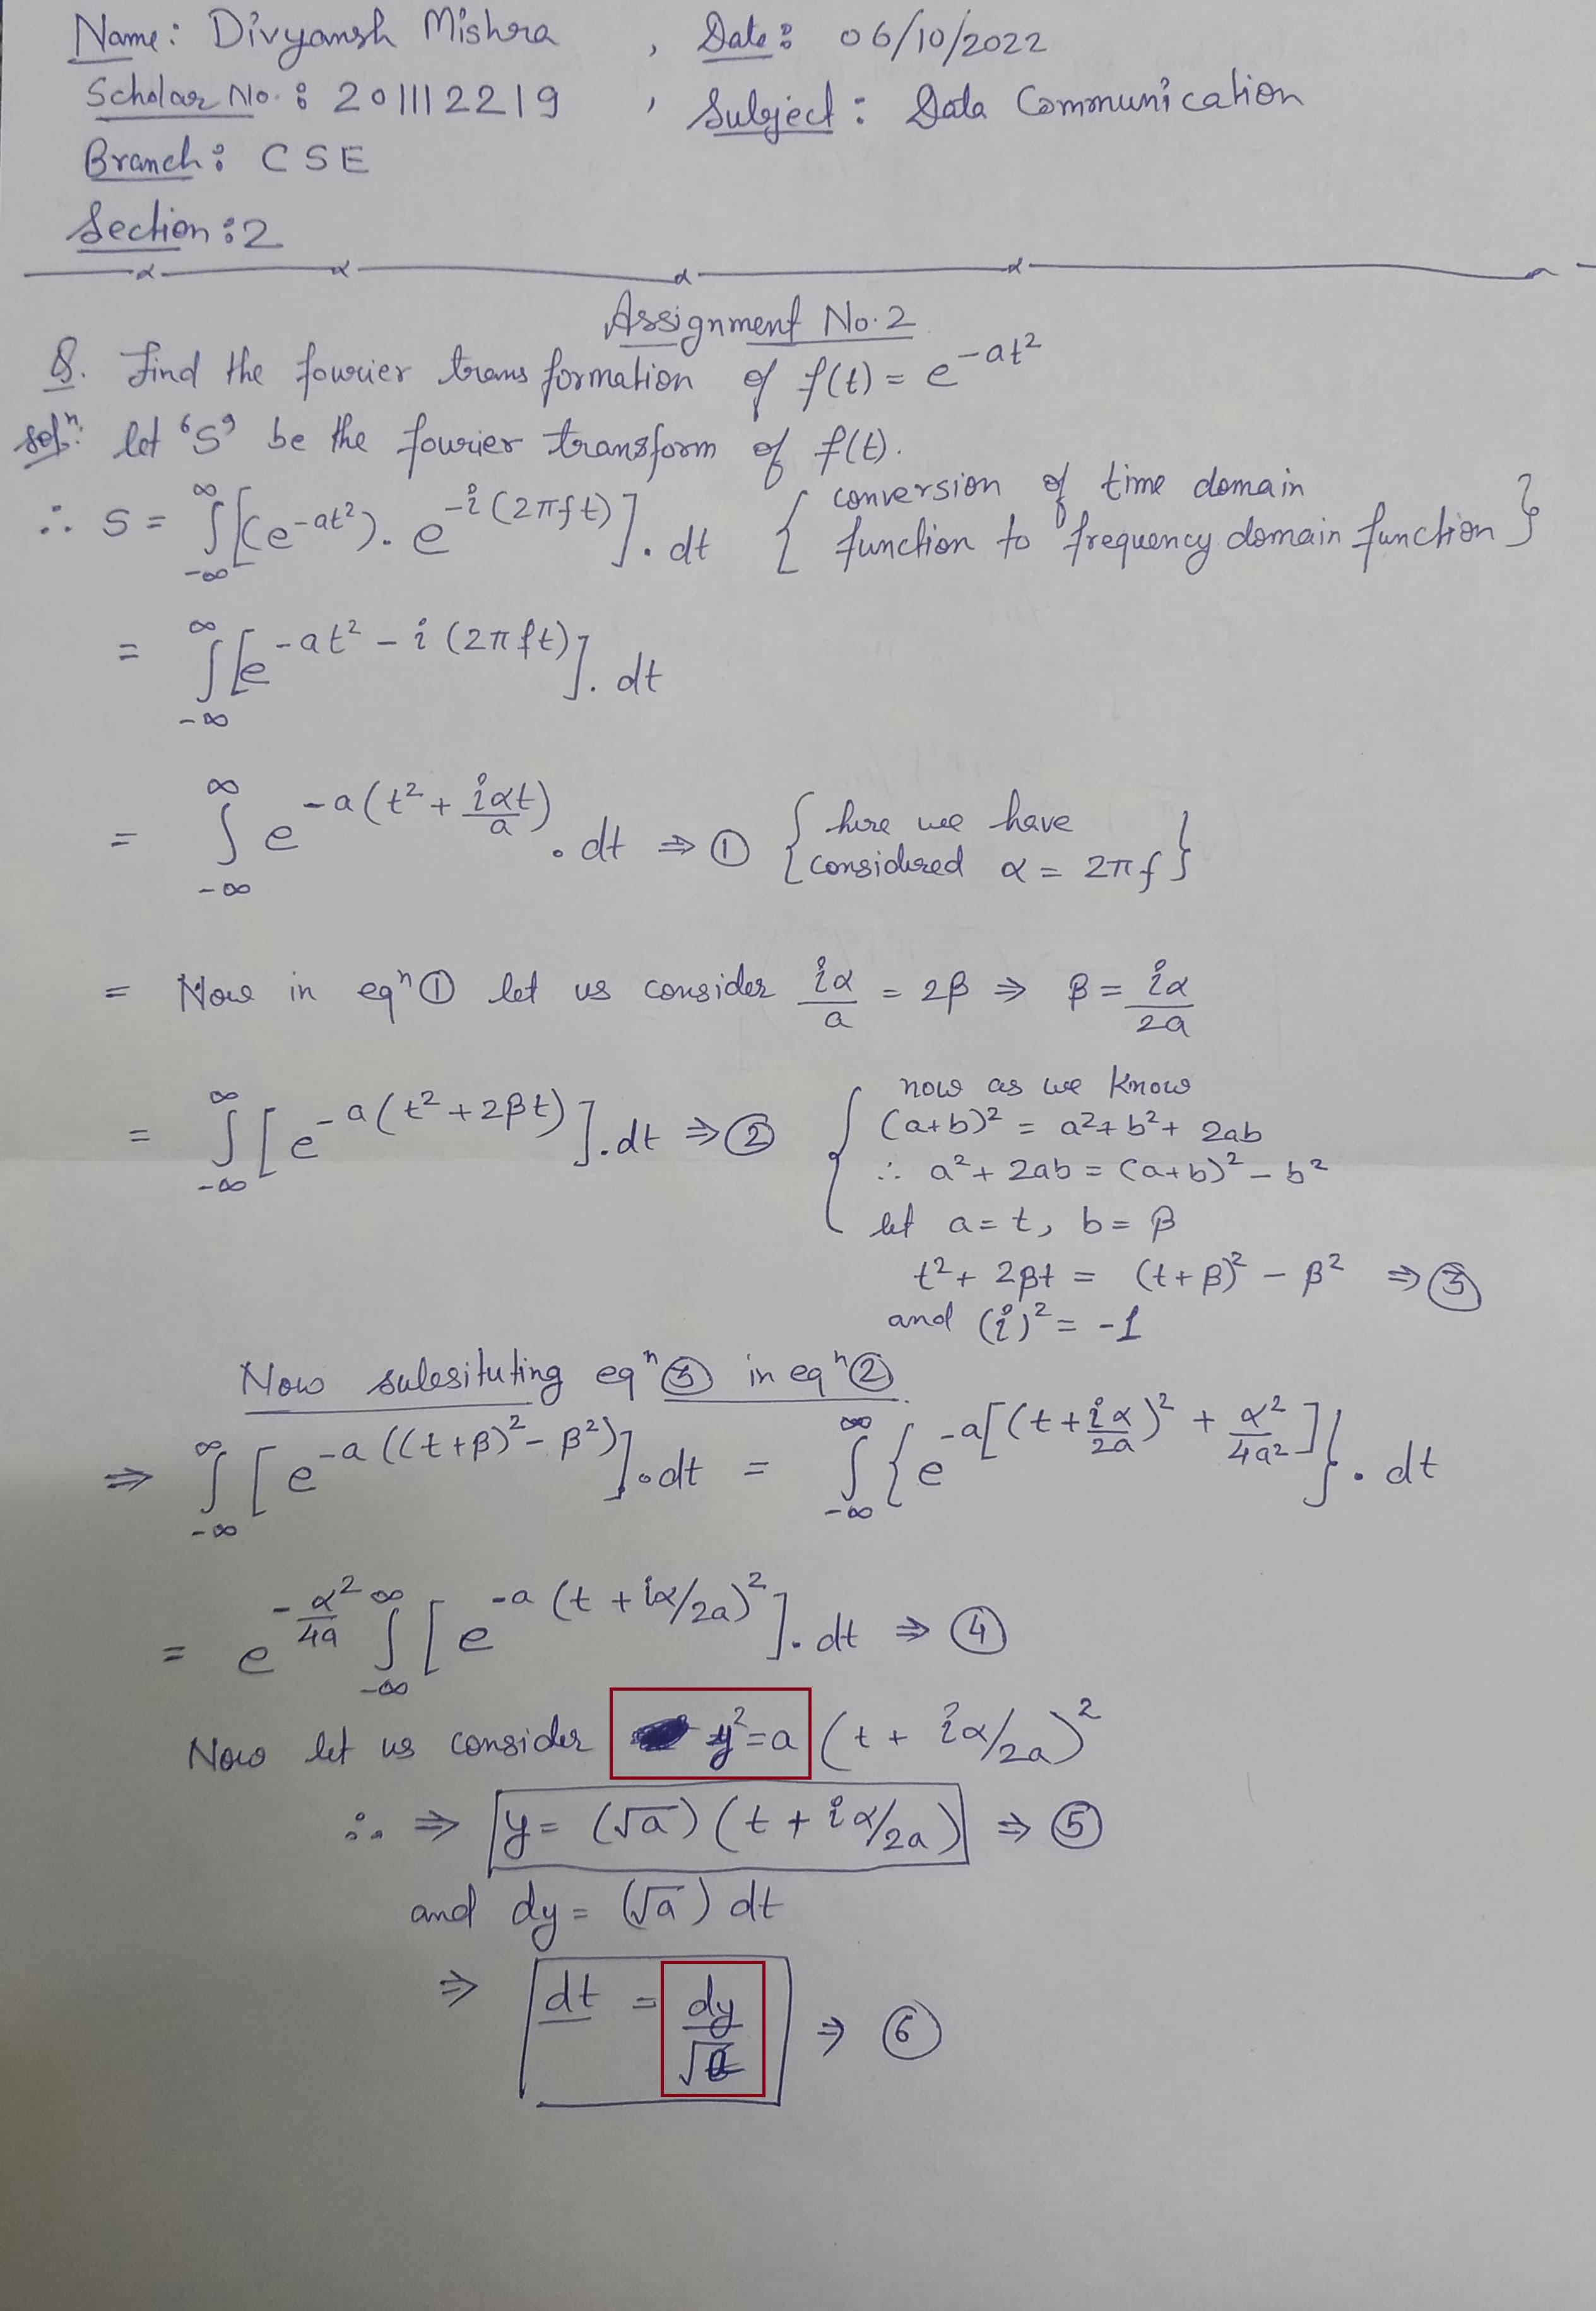 Name: Divyansh Mishra , Date: 06/10/2022
Scholar No.: 201112219 , Subject: Data Communication
Branch: CSE
Section: 2
Assignment No. 2
Q. Find the fourier transformation of f(t) = e^{-at²}
Solⁿ: let 'S' be the fourier transform of f(t).
∴ S = ∫_{-∞}^{∞} [(e^{-at²}). e^{-i(2πft)}]. dt { conversion of time domain function to frequency domain function }
= ∫_{-∞}^{∞} [e^{-at² - i(2πft)}]. dt
= ∫_{-∞}^{∞} e^{-a(t² + iαt/a)}. dt ⇒ ① { here we have considered α = 2πf }
= Now in eqⁿ ① let us consider iα/a = 2β ⇒ β = iα/2a
= ∫_{-∞}^{∞} [e^{-a(t² + 2βt)}]. dt ⇒ ②
{ now as we know
(a+b)² = a² + b² + 2ab
∴ a² + 2ab = (a+b)² - b²
let a = t, b = β
t² + 2βt = (t+β)² - β² ⇒ ③
and (i)² = -1
Now subsituting eqⁿ ③ in eqⁿ ②.
⇒ ∫_{-∞}^{∞} [e^{-a((t+β)² - β²)}]. dt = ∫_{-∞}^{∞} {e^{-a[(t + iα/2a)² + α²/4a²]}}. dt
= e^{-α²/4a} ∫_{-∞}^{∞} [e^{-a(t + iα/2a)²}]. dt ⇒ ④
Now let us consider y² = a (t + iα/2a)²
∴ ⇒ y = (√a) (t + iα/2a) ⇒ ⑤
and dy = (√a) dt
⇒ dt = dy/√a ⇒ ⑥